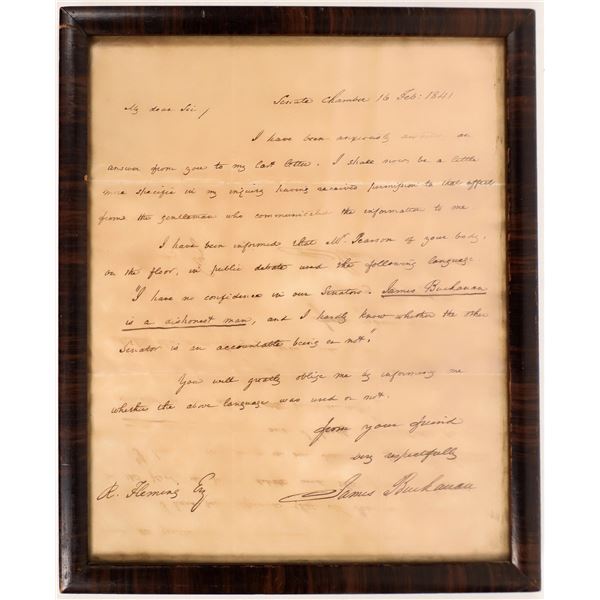 Senate Chamber 16 Feb: 1841
My dear Sir/
I have been anxiously awaiting an
answer from you to my last letter. I shall now be a little
more specific in my inquiry having received permission to that effect
from the gentleman who communicated the information to me
I have been informed that Mr. Pearson of your body,
on the floor, in public debate used the following language
"I have no confidence in our Senators. James Buchanan
is a dishonest man, and I hardly know whether the other
Senator is an accountable being or not."
You will greatly oblige me by informing me
whether the above language was used or not.
from your friend
very respectfully
James Buchanan
R. Fleming Esq